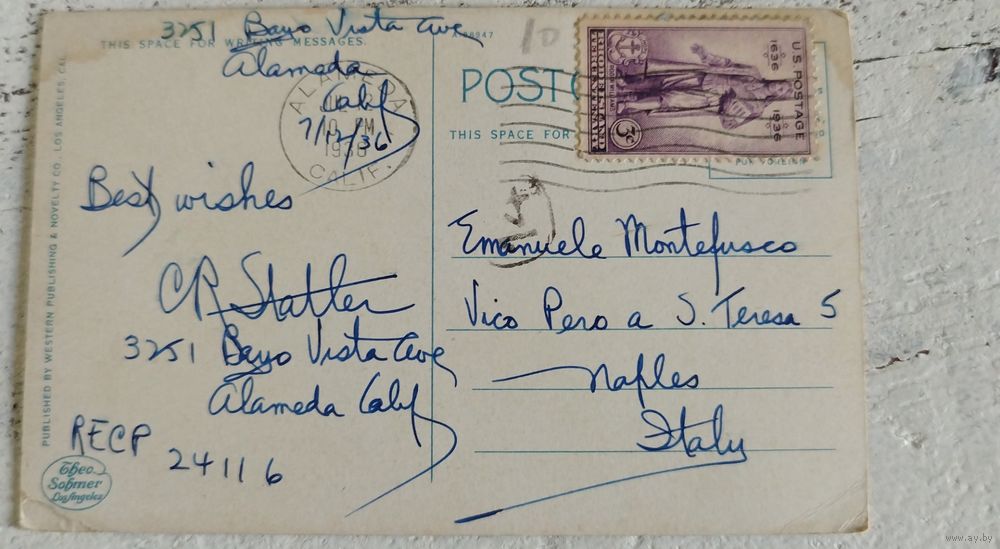 3251 Bayo Vista Ave
THIS SPACE FOR WRITING MESSAGES.
Alameda
Calif
7/12/36
ALAMEDA
10 PM
1936
CALIF.
Best wishes
CR Statler
3251 Bayo Vista Ave
Alameda Calif
RECP
24116
Theo.
Sohmer
Los Angeles
PUBLISHED BY WESTERN PUBLISHING & NOVELTY CO., LOS ANGELES, CAL.
10
POST
THIS SPACE FOR
U.S. POSTAGE
1636
1936
RHODE ISLAND
TERCENTENARY
3c
Emanuele Montefusco
Vico Pero a S. Teresa 5
Naples
Italy
www.ay.by